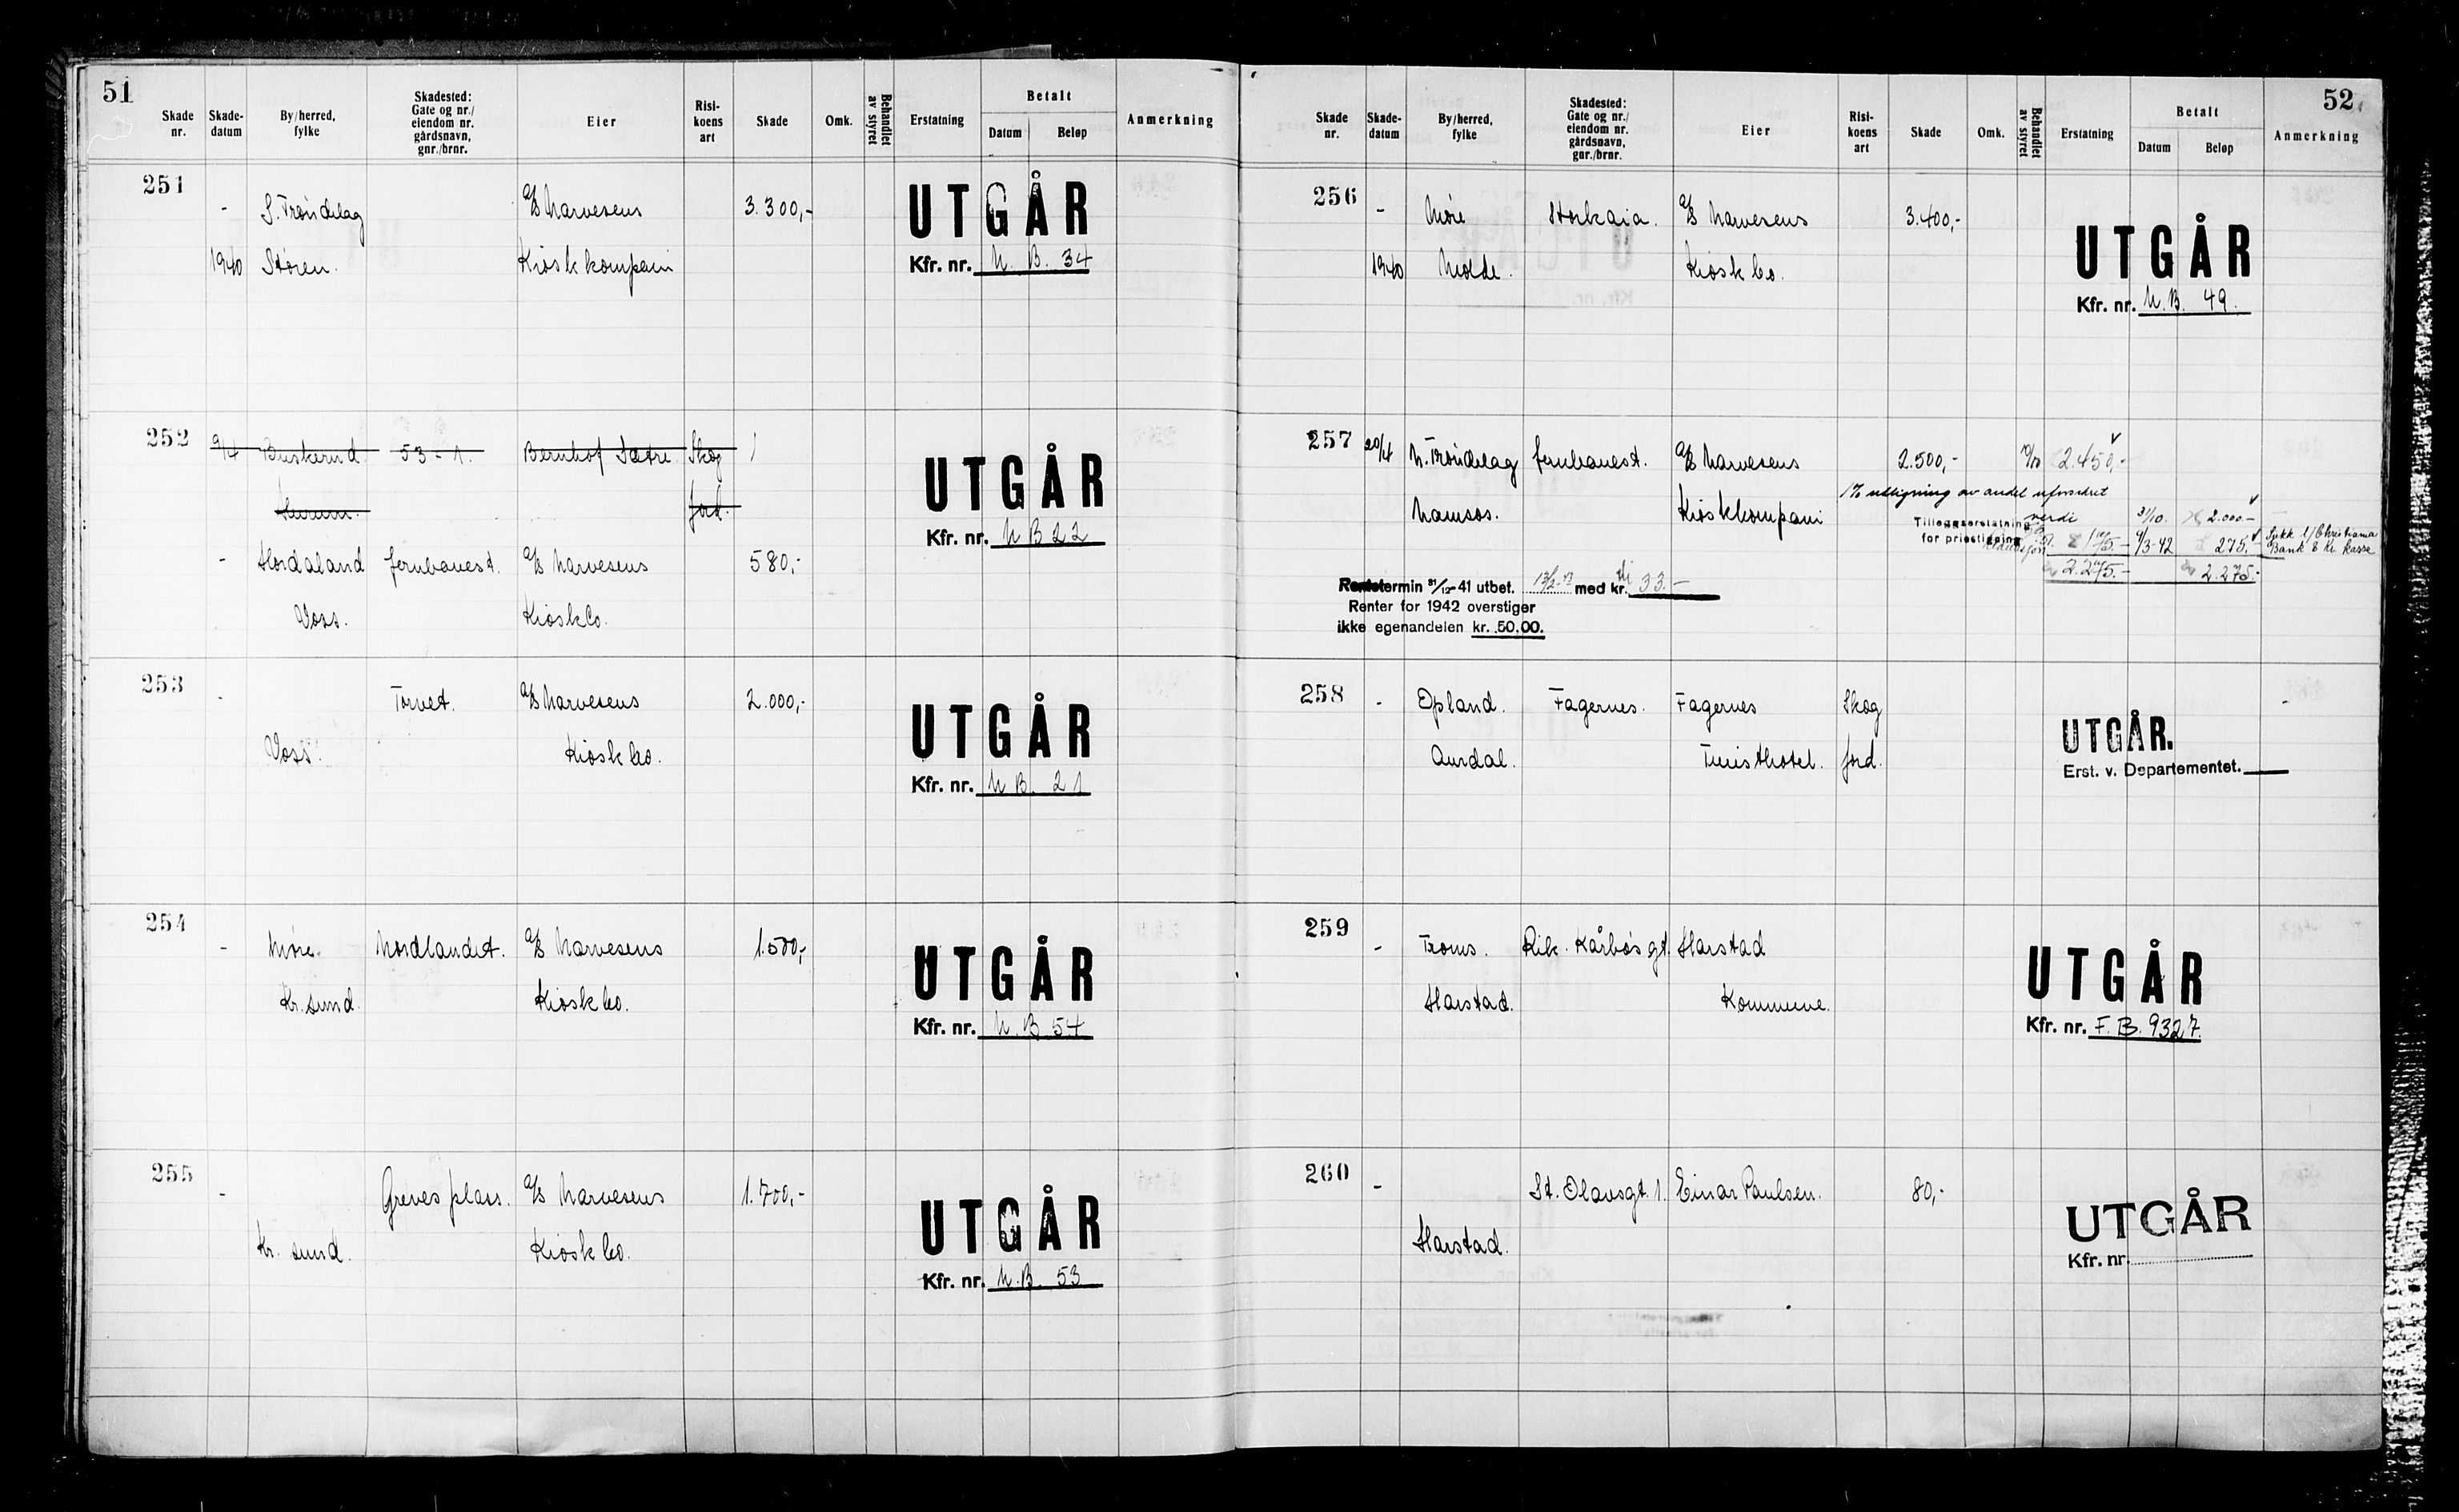 51
Skade nr. Skade-datum By/herred, fylke Skadested: Gate og nr./ eiendom nr. gårdsnavn, gnr./brnr. Eier Risi-koens art Skade Omk. Behandlet av styret Erstatning Betalt Datum Beløp Anmerkning
251 - S. Trøndelag A/S Narvesens 3.300,- UTGÅR
1940 Støren. Kioskkompani Kfr. nr. N. B. 34
252 9/4 Buskerud. 53 - 1. Bernhof Sætre. Skog UTGÅR
jord. Kfr. nr. N B 22
- Hordaland Jernbanest. A/S Narvesens 580,-
Voss. Kiosk Co.
253 - Torvet. A/S Narvesens 2.000,- UTGÅR
Voss. Kiosk Co. Kfr. nr. N B. 21
254 - Møre. Nordlandet. A/S Narvesens 1.500,- UTGÅR
Kr. sund. Kiosk Co. Kfr. nr. N. B 54
255 - Greves plass. A/S Narvesens 1.700,- UTGÅR
Kr. sund. Kiosk Co. Kfr. nr. N. B. 53
52
Skade nr. Skade-datum By/herred, fylke Skadested: Gate og nr./ eiendom nr. gårdsnavn, gnr./brnr. Eier Risi-koens art Skade Omk. Behandlet av styret Erstatning Betalt Datum Beløp Anmerkning
256 - Møre Storkaia. A/S Narvesens 3.400,- UTGÅR
1940 Molde. Kiosk Co. Kfr. nr. N. B. 49.
257 20/4 N. Trøndelag Jernbanest. A/S Narvesens 2.500,- 2.450,-
1% utligning av andel uforsikret
Namsos. Kioskkompani verdi 31/10. 2.000.-
Tilleggserstatning for prisstigning 9/3-42 275.- Sjekk l/Christiania Bank & Kr. kasse
2.275.- 2.275.-
Rentetermin 31/12-41 utbet. 13/2-43 med kr. 33.-
Renter for 1942 overstiger
ikke egenandelen kr. 50,00.
258 - Opland. Fagernes. Fagernes Skog UTGÅR.
Aurdal. Turisthotel. jord. Erst. v. Departementet.
259 - Troms. Rik. Kårbøs gt. Harstad UTGÅR
Harstad. Kommune. Kfr. nr. F. B. 9327.
260 - St. Olavsgt. 1. Einar Paulsen. 80,- UTGÅR
Harstad. Kfr. nr.